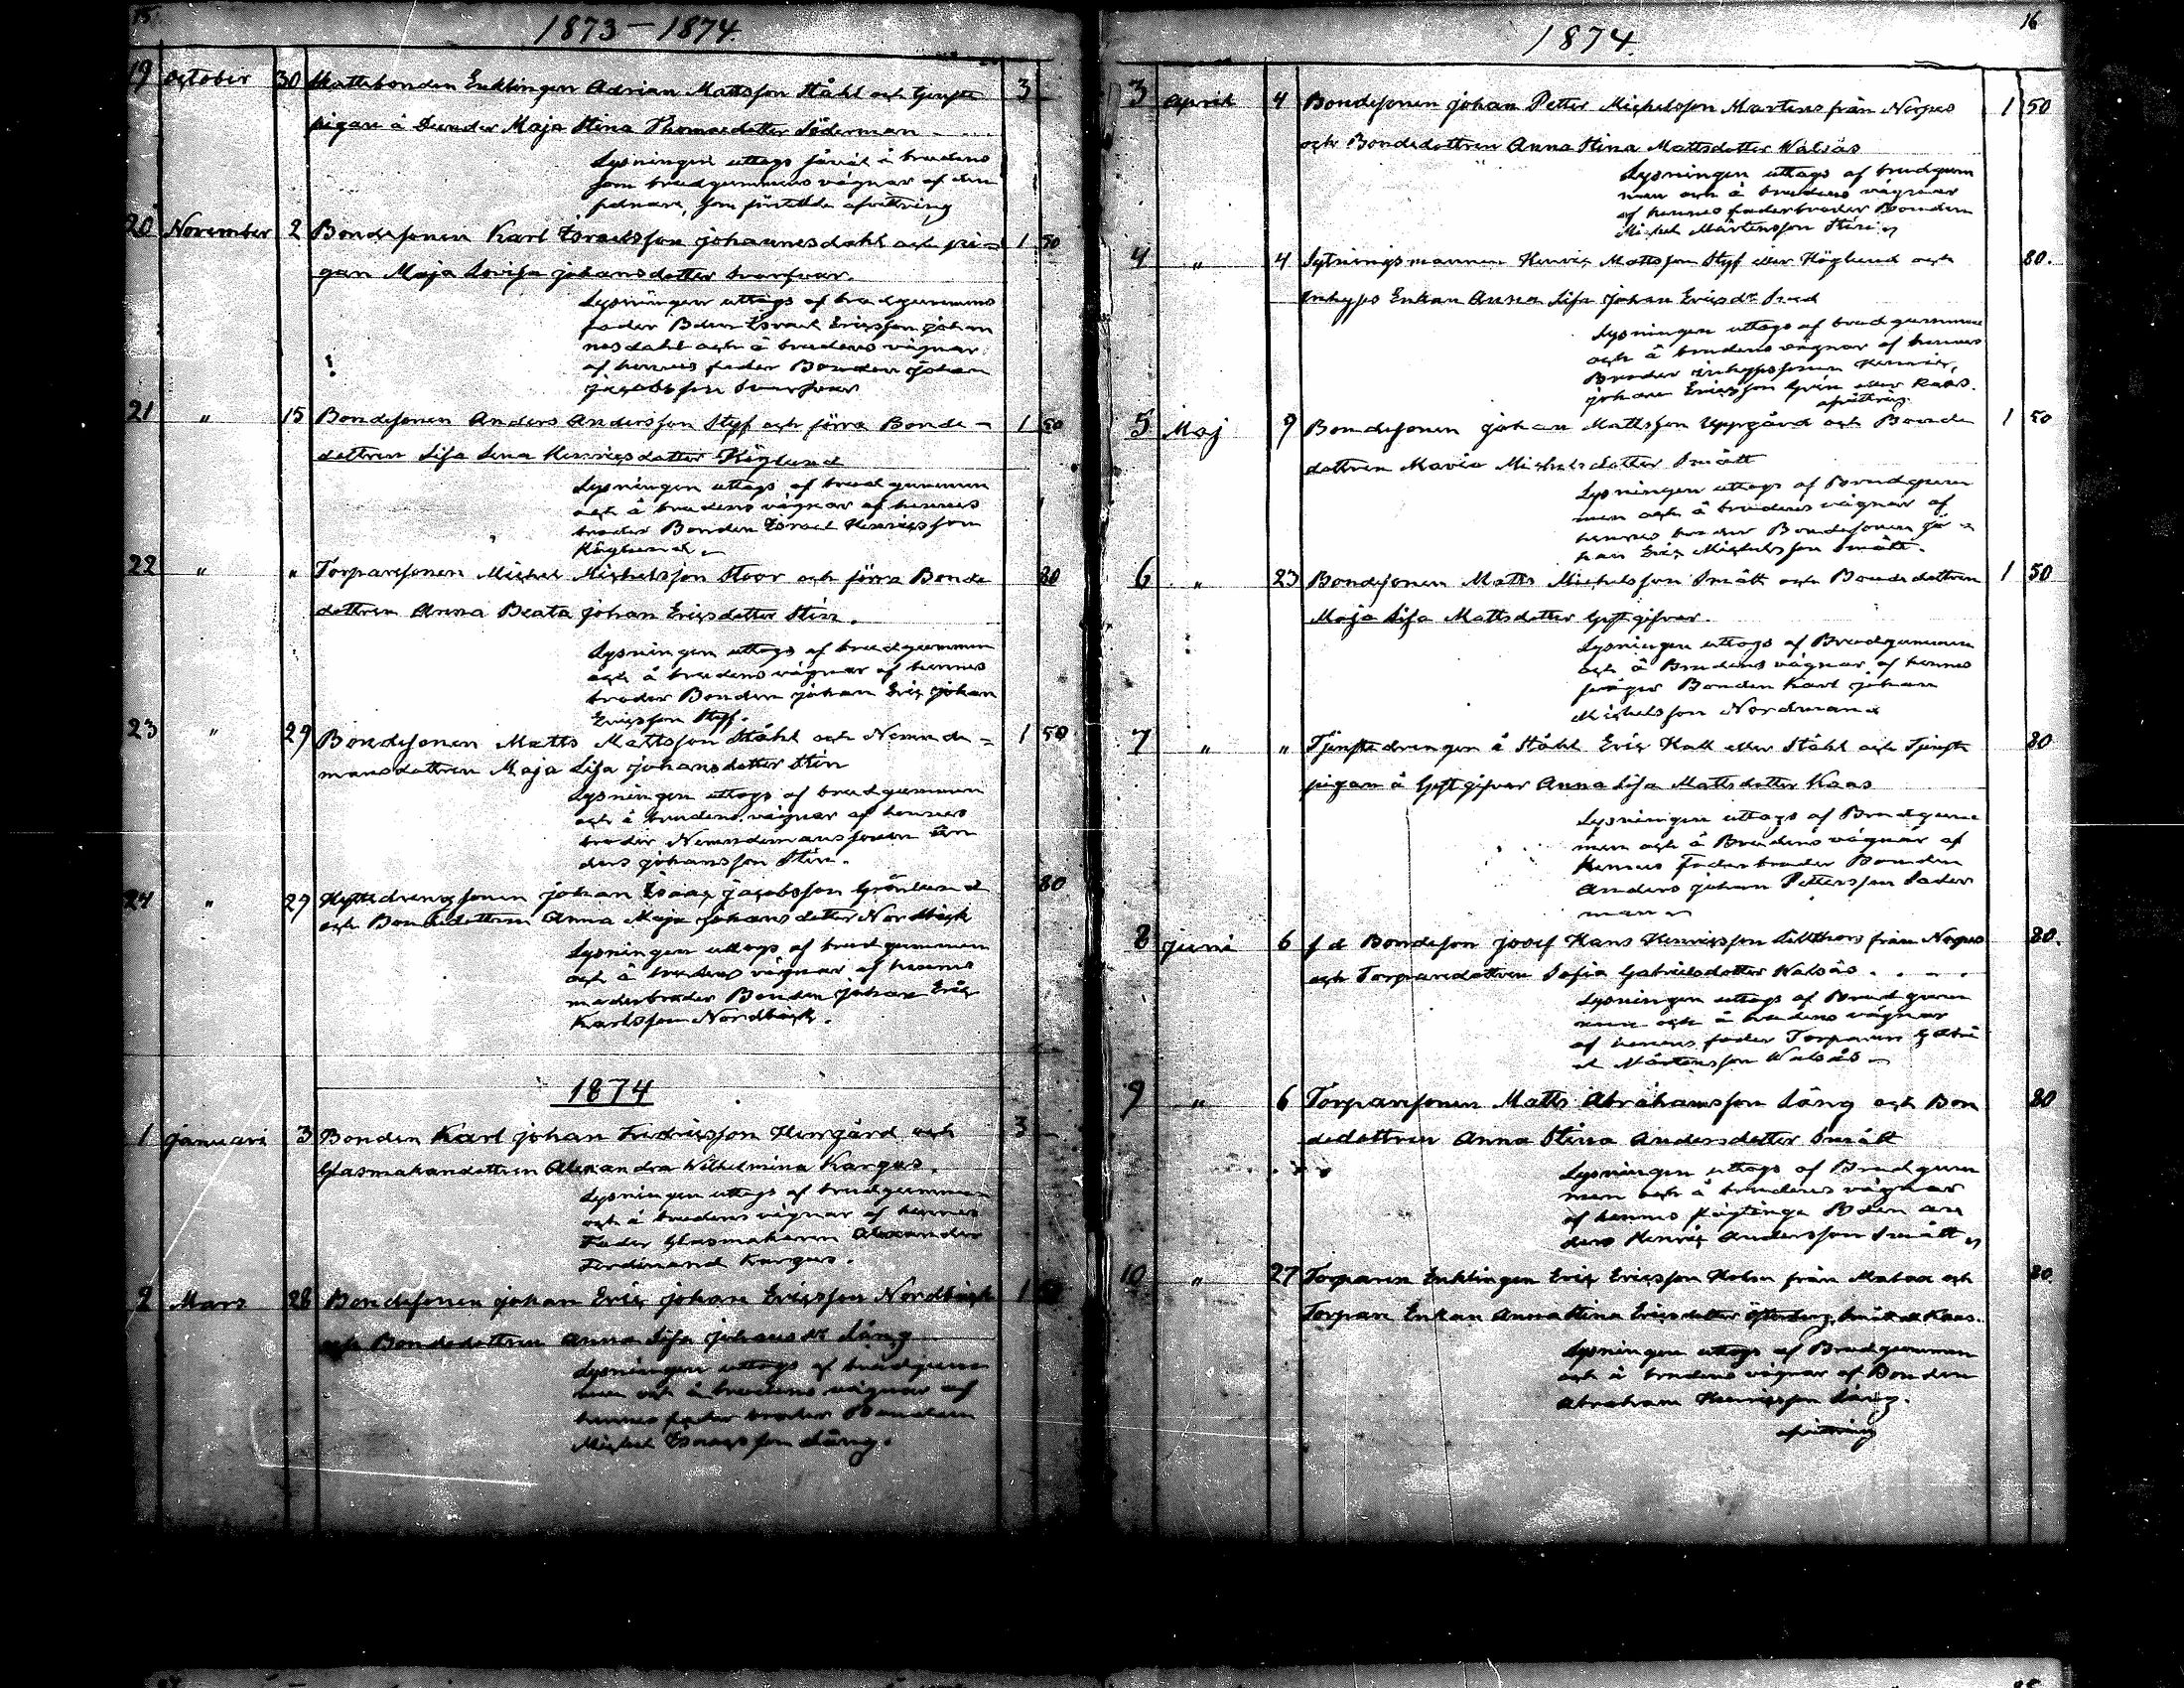 15.
1873 – 1874.
19 October 30 Enklingen Adrian Mattsson Ståhl och 3 –
pigan å Maja Stina Thomasdotter Söderman
Lysningen uttogs å brudens
som brudgummens vägnar af den
20 November 2 Bondesonen Karl Israelsson Johannesdahl och pi= 1 50
gan Maja Lovisa Johansdotter
Lysningen uttogs af brudgummens
fader Israel Ericsson Johan
nesdahl och å brudens vägnar
af hennes fader Bonden Johan
Jacobsson
21 " 15 Bondesonen Anders Andersson Styf och förra Bonde – 1 50
dottren Lisa Lena Henricsdotter Höglund
Lysningen uttogs af brudgummen
och å brudens vägnar af hennes
broder Bonden Israel Henricsson
Höglund.
22 " " Torparesonen Michel Michelsson Stoor och förra Bonde 80
dottren Anna Beata Johan Ericsdotter
Lysningen uttogs af brudgummen
och å brudens vägnar af hennes
broder Bonden Johan Eric Johan
Ericsson Styf.
23 " 29 Bondesonen Matts Mattsson Ståhl och Nemnde = 1 50
mansdottren Maja Lisa Johansdotter
Lysningen uttogs af brudgummen
och å brudens vägnar af hennes
broder Nemndemanssonen An
ders Johansson
24 " 29 Johan Isaac Jacobsson Grönlund 80
och Bondedottren Anna Maja Johansdotter Nordbäck
Lysningen uttogs af brudgummen
och å brudens vägnar af hennes
moderbroder Bonden Johan Eric
Karlsson Nordbäck.
1874
1 Januari 3 Bonden Karl Johan Fredricsson Herrgård och 3 –
Glasmakaredottren Alexandra Wilhelmina Kargus.
Lysningen uttogs af brudgummen
och å brudens vägnar af hennes
Fader Glasmakaren Alexander
Ferdinand Kargus.
2 Mars 28 Bondesonen Johan Eric Johan Ericsson Nordbäck 1 50
och Bondedottren Anna Lisa Johansdr Lång
Lysningen uttogs af brudgum
men och å brudens vägnar af
hennes fader broder Bonden
Michel Isaacsson Lång.
16
1874.
3 April 4 Bondesonen Johan Petter Michelsson Martens från Närpes 1 50
och Bondedottren Anna Stina Mattsdotter Walsås
Lysningen uttogs af brudgum
men och å brudens vägnar
af hennes faderbroder Bonden
Michel Mårtensson
4 " 4 Sytningsmannen Henric Mattsson Styf eller Höglund och 80.
Inhyses Enkan Anna Lisa Johan Ericsdr
Lysningen uttogs af brudgummen
och å brudens vägnar af hennes
Broder Inhysessonen Henric
Johan Ericsson eller Kaas.
5 Maj 9 Bondesonen Johan Mattsson Uppgård och Bonde 1 50
dottren Maria Michelsdotter Smått
Lysningen uttogs af Brudgum
men och å brudens vägnar af
hennes broder Bondesonen Jo =
han Eric Michelsson Smått.
6 " 23 Bondesonen Matts Michelsson Smått och Bondedottren 1 50
Maja Lisa Mattsdotter Gästgifvar.
Lysningen uttogs af Brudgummen
och å Brudens vägnar af hennes
svåger Bonden Karl Johan
Michelsson Nordman
7 " " Tjenstedrengen å Ståhl Eric Hall eller Ståhl och Tjenste 80
pigan å Gästgifvar Anna Lisa Mattsdotter Kaas
Lysningen uttogs af Brudgum
men och å Brudens vägnar af
Hennes Faderbroder Bonden
Anders Johan Pettersson Söder
man
8 Juni 6 f d Bondeson Josef Hans Henricsson från Närpes 80.
och Torparedottren Sofia Gabrielsdotter Walsås
Lysningen uttogs af Brudgum
men och å brudens vägnar
af hennes fader Torparen Gabri
el Mårtensson Walsås
9 " 6 Torparesonen Matts Abrahamsson Lång och Bon 80
dedottren Anna Stina Andersdotter Smått
Lysningen uttogs af Brudgum
men och å brudens vägnar
af hennes An
ders Henric Andersson Smått
10 " 27 Torparen Enklingen Eric Ericsson Holm från Malax och 80.
Torpare Enkan Anna Stina Ericsdotter Kaas.
Lysningen uttogs af Brudgumman
och å brudens vägnar af Bonden
Abraham Henricsson Lång.